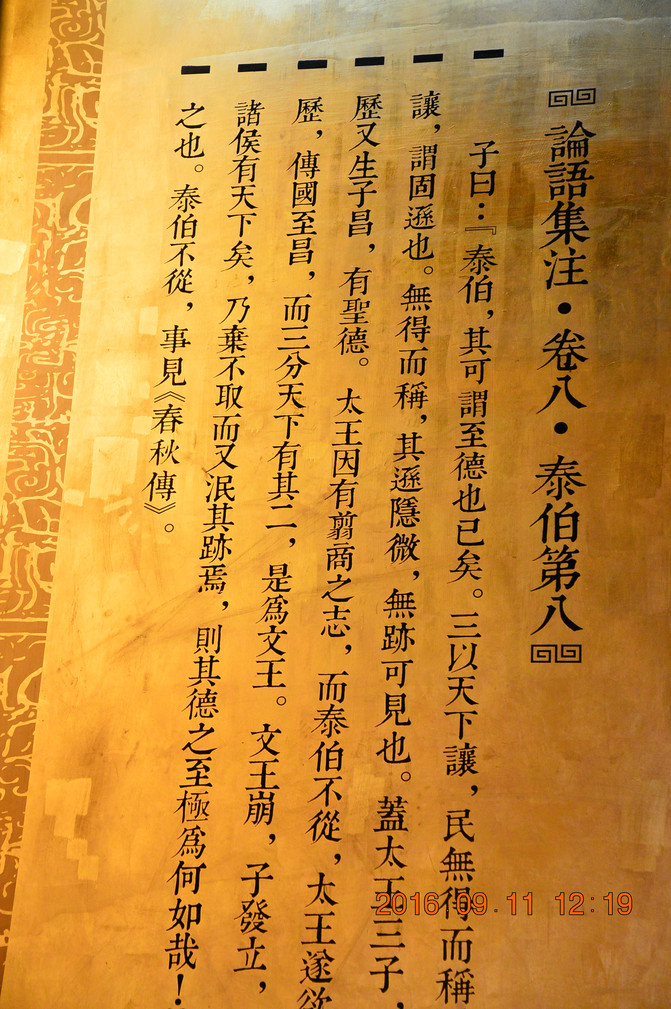 論語集注·卷八·泰伯第八
子曰：『泰伯，其可謂至德也已矣。三以天下讓，民無得而稱
讓，謂固遜也。無得而稱，其遜隱微，無跡可見也。蓋太王三子，
歷又生子昌，有聖德。太王因有翦商之志，而泰伯不從，太王遂欲
歷，傳國至昌，而三分天下有其二，是為文王。文王崩，子發立，
諸侯有天下矣，乃棄不取而又泯其跡焉，則其德之至極為何如哉！
之也。泰伯不從，事見《春秋傳》。
2016.09.11 12:19